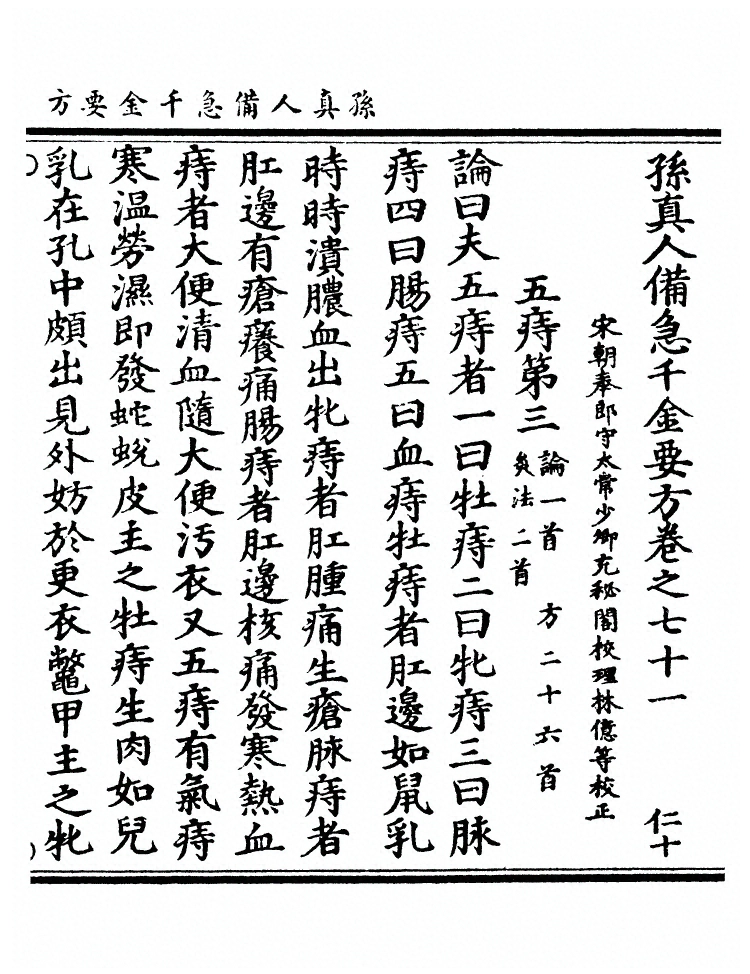 孫真人備急千金要方
孫真人備急千金要方卷之七十一 仁十
宋朝奉郎守太常少卿充秘閣校理林億等校正
五痔第三 論一首 方二十六首
灸法二首
論曰夫五痔者一曰牡痔二曰牝痔三曰脉
痔四曰腸痔五曰血痔牡痔者肛邊如鼠乳
時時潰膿血出牝痔者肛腫痛生瘡脉痔者
肛邊有瘡癢痛腸痔者肛邊核痛發寒熱血
痔者大便清血隨大便汚衣又五痔有氣痔
寒温勞濕即發蛇蛻皮主之牡痔生肉如兒
乳在孔中頗出見外妨於更衣鼈甲主之牝